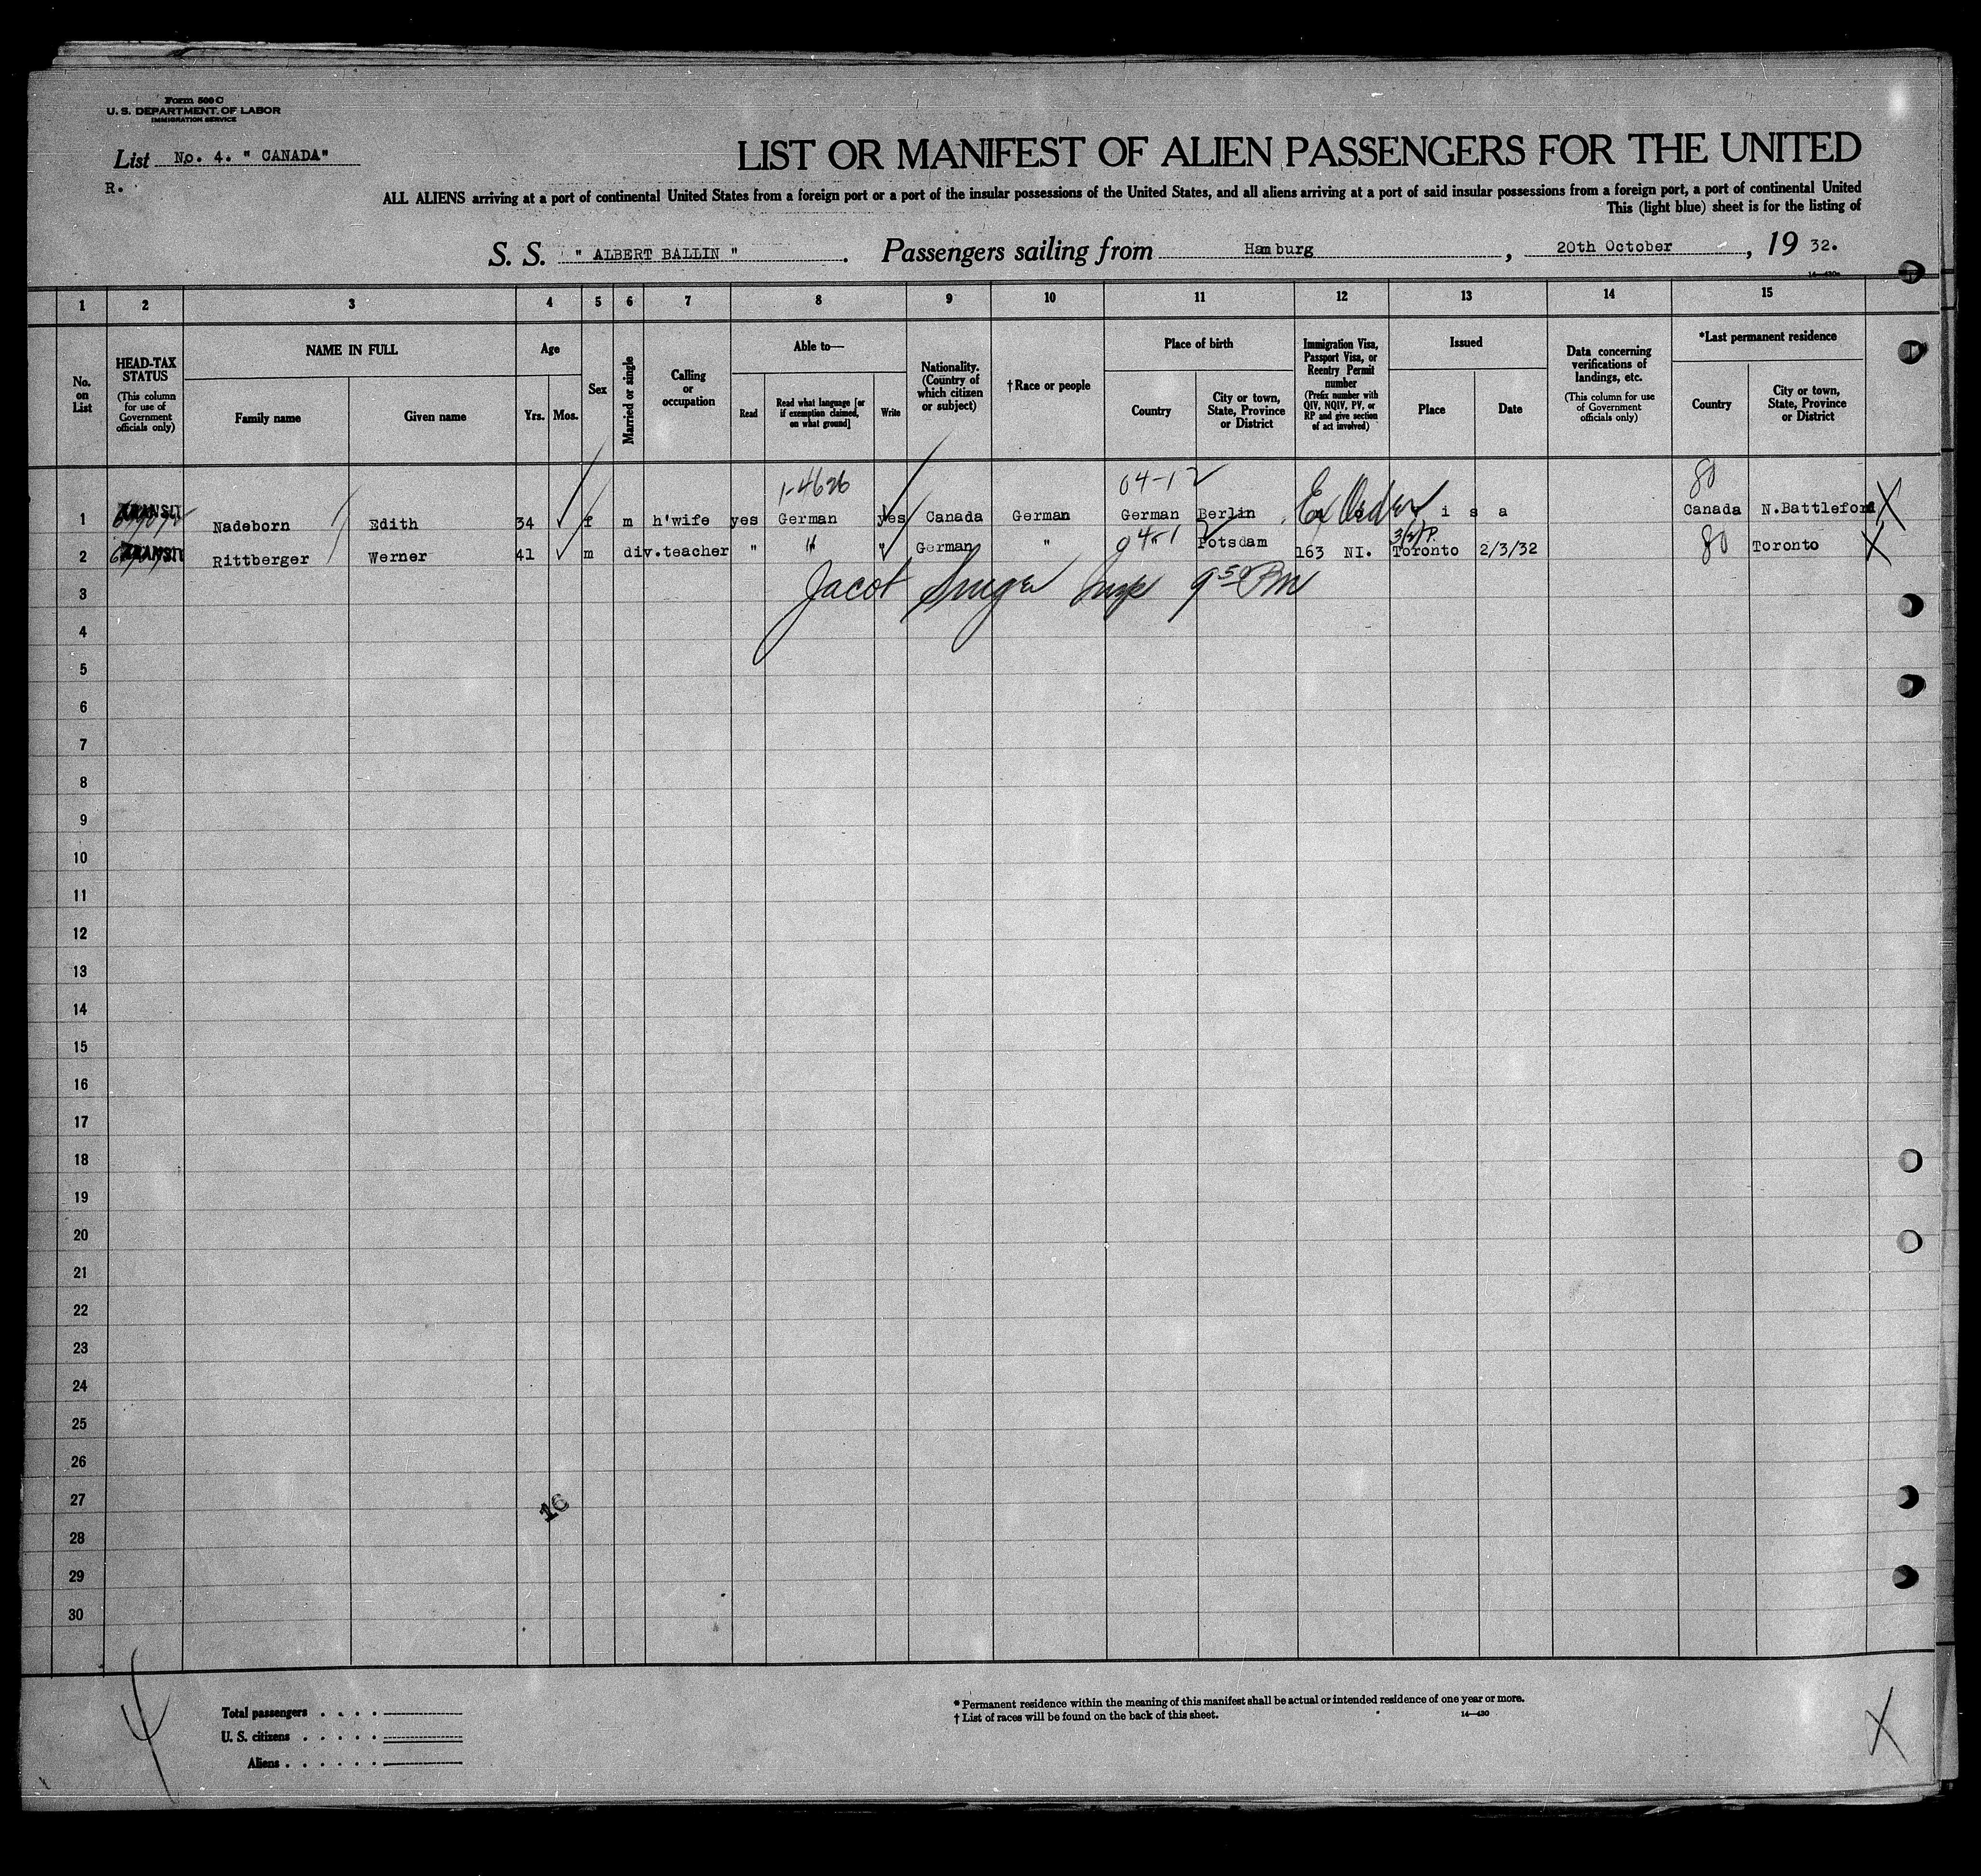 Form 500 C
U. S. DEPARTMENT OF LABOR
IMMIGRATION SERVICE
List No. 4. " CANADA"
R.
LIST OR MANIFEST OF ALIEN PASSENGERS FOR THE UNITED
ALL ALIENS arriving at a port of continental United States from a foreign port or a port of the insular possessions of the United States, and all aliens arriving at a port of said insular possessions from a foreign port, a port of continental United
This (light blue) sheet is for the listing of
S. S. " ALBERT BALLIN " . Passengers sailing from Hamburg , 20th October , 19 32.
1 2 3 4 5 6 7 8 9 10 11 12 13 14 15
No. on List
HEAD-TAX STATUS
(This column for use of Government officials only)
NAME IN FULL
Family name
Given name
Age
Yrs. Mos.
Sex
Married or single
Calling or occupation
Able to—
Read
Read what language [or if exemption claimed, on what ground]
Write
Nationality. (Country of which citizen or subject)
†Race or people
Place of birth
Country
City or town, State, Province or District
Immigration Visa, Passport Visa, or Reentry Permit number
(Prefix number with QIV, NQIV, PV, or RP and give section of act involved)
Issued
Place
Date
Data concerning verifications of landings, etc.
(This column for use of Government officials only)
*Last permanent residence
Country
City or town, State, Province or District
1-4626 04-1 80
1 TRANSIT Nadeborn Edith 34 f m h'wife yes German yes Canada German German Berlin Ex Order i s a Canada N.Battleford X
2 TRANSIT Rittberger Werner 41 m div. teacher " " " German " 04-1 Potsdam 163 NI. Toronto 2/3/32 80 Toronto X
3 Jacob Insp 9 50 PM
4
5
6
7
8
9
10
11
12
13
14
15
16
17
18
19
20
21
22
23
24
25
26
27
16
28
29
30
Total passengers . . . .
U. S. citizens . . . . .
Aliens . . . . . .
* Permanent residence within the meaning of this manifest shall be actual or intended residence of one year or more.
† List of races will be found on the back of this sheet.
14—430
X